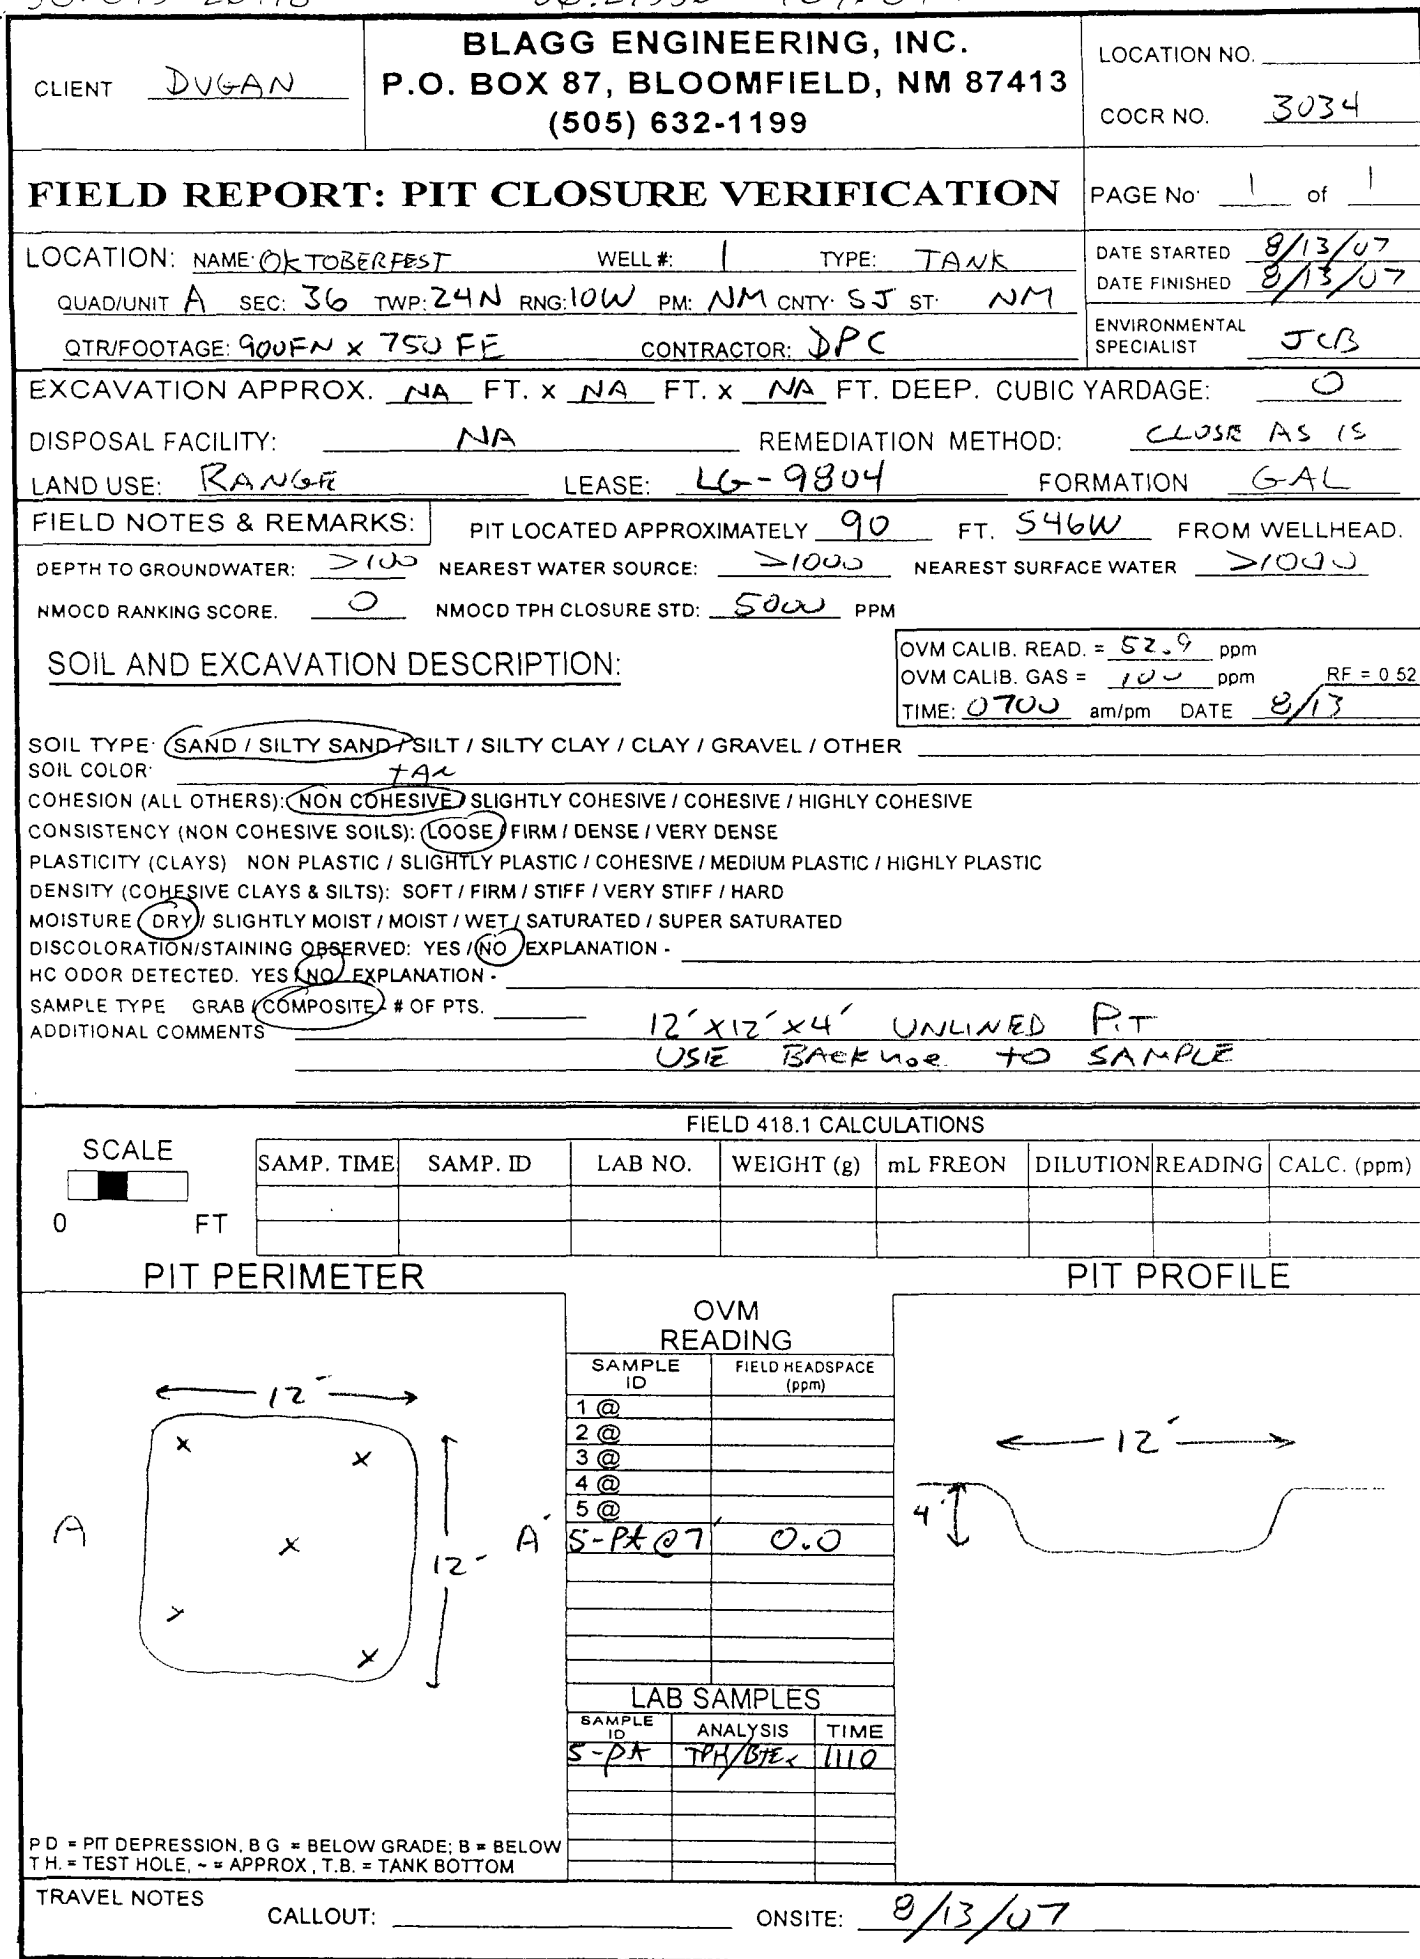 CLIENT DUGAN
BLAGG ENGINEERING, INC.
P.O. BOX 87, BLOOMFIELD, NM 87413
(505) 632-1199
LOCATION NO.
COCR NO. 3034
FIELD REPORT: PIT CLOSURE VERIFICATION
PAGE No 1 of 1
LOCATION: NAME: OKTOBERFEST WELL #: 1 TYPE: TANK
QUAD/UNIT A SEC: 36 TWP: 24N RNG: 10W PM: NM CNTY: SJ ST: NM
QTR/FOOTAGE: 900FN x 750 FE CONTRACTOR: DPC
DATE STARTED 8/13/07
DATE FINISHED 8/13/07
ENVIRONMENTAL
SPECIALIST JCB
EXCAVATION APPROX. NA FT. x NA FT. x NA FT. DEEP. CUBIC YARDAGE: 0
DISPOSAL FACILITY: NA REMEDIATION METHOD: CLOSE AS IS
LAND USE: RANGE LEASE: LG-9804 FORMATION GAL
FIELD NOTES & REMARKS: PIT LOCATED APPROXIMATELY 90 FT. S46W FROM WELLHEAD.
DEPTH TO GROUNDWATER: >100 NEAREST WATER SOURCE: >1000 NEAREST SURFACE WATER >1000
NMOCD RANKING SCORE. 0 NMOCD TPH CLOSURE STD: 5000 PPM
SOIL AND EXCAVATION DESCRIPTION:
OVM CALIB. READ. = 52.9 ppm
OVM CALIB. GAS = 100 ppm RF = 0 52
TIME: 0700 am/pm DATE 8/13
SOIL TYPE: SAND / SILTY SAND / SILT / SILTY CLAY / CLAY / GRAVEL / OTHER
SOIL COLOR: tAn
COHESION (ALL OTHERS): NON COHESIVE / SLIGHTLY COHESIVE / COHESIVE / HIGHLY COHESIVE
CONSISTENCY (NON COHESIVE SOILS): LOOSE / FIRM / DENSE / VERY DENSE
PLASTICITY (CLAYS) NON PLASTIC / SLIGHTLY PLASTIC / COHESIVE / MEDIUM PLASTIC / HIGHLY PLASTIC
DENSITY (COHESIVE CLAYS & SILTS): SOFT / FIRM / STIFF / VERY STIFF / HARD
MOISTURE DRY / SLIGHTLY MOIST / MOIST / WET / SATURATED / SUPER SATURATED
DISCOLORATION/STAINING OBSERVED: YES / NO EXPLANATION -
HC ODOR DETECTED. YES / NO EXPLANATION -
SAMPLE TYPE GRAB / COMPOSITE - # OF PTS.
ADDITIONAL COMMENTS 12'x12'x4' UNLINED PiT
USE BACKhoe tO SAMPLE
FIELD 418.1 CALCULATIONS
SCALE
0 FT
SAMP. TIME SAMP. ID LAB NO. WEIGHT (g) mL FREON DILUTION READING CALC. (ppm)
PIT PERIMETER
PIT PROFILE
OVM
READING
SAMPLE
ID
FIELD HEADSPACE
(ppm)
1 @
2 @
3 @
4 @
5 @
5-Pt @ 7' 0.0
12'
x x
x
x x
A
12'
A'
12'
4'
LAB SAMPLES
SAMPLE
ID
ANALYSIS TIME
5-pt TPH/BTEX 1110
P D = PIT DEPRESSION, B G = BELOW GRADE; B = BELOW
T H. = TEST HOLE, ~ = APPROX , T.B. = TANK BOTTOM
TRAVEL NOTES
CALLOUT: ONSITE: 8/13/07